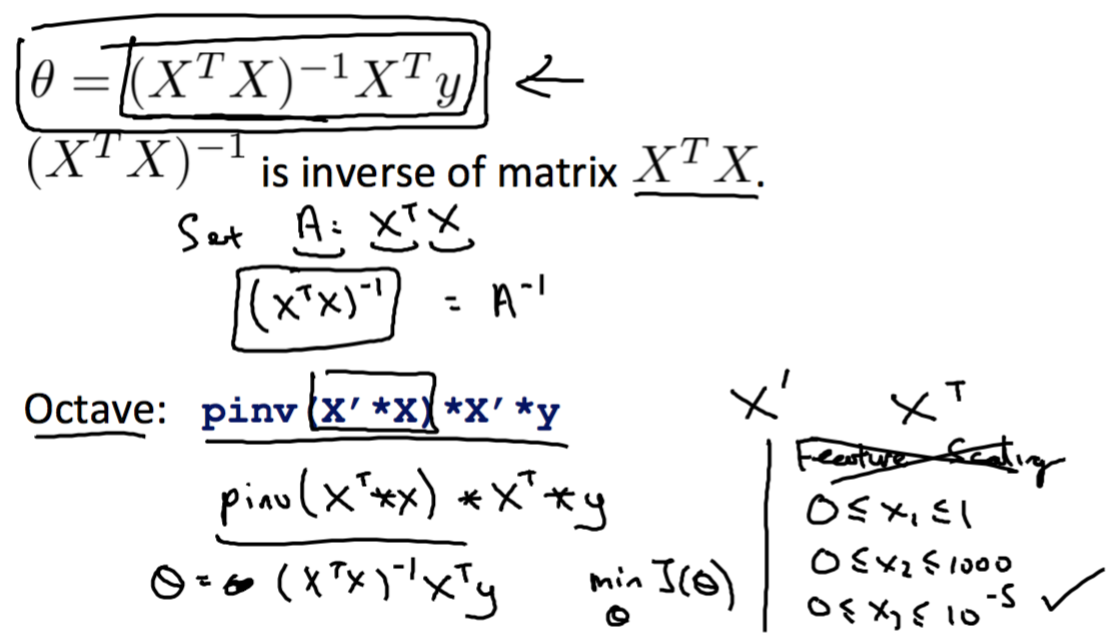 θ = (XᵀX)⁻¹Xᵀy ←
(XᵀX)⁻¹ is inverse of matrix XᵀX.
Set A = XᵀX
(XᵀX)⁻¹ = A⁻¹
Octave: pinv(X'*X)*X'*y
pinv(Xᵀ*X) * Xᵀ * y
θ = (XᵀX)⁻¹Xᵀy
min J(θ)
θ
X' Xᵀ
Feature Scaling
0 ≤ x₁ ≤ 1
0 ≤ x₂ ≤ 1000
0 ≤ x₃ ≤ 10⁻⁵ ✓